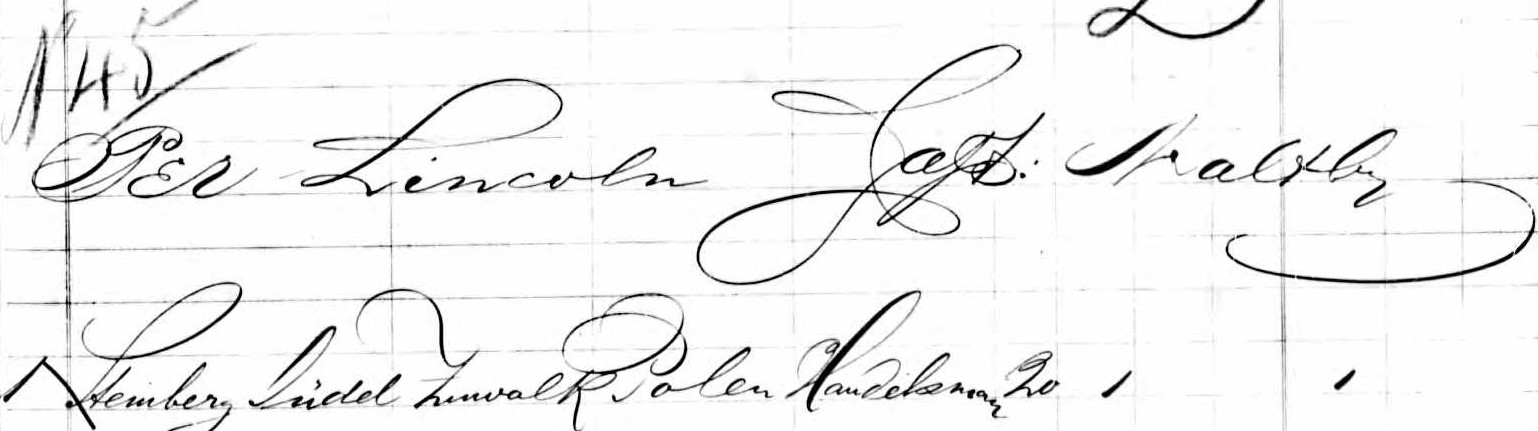 N 45
Per Lincoln Capt: Maltby
1 Steinberg Jüdel Suwalk Polen Handelsman 20 1 1